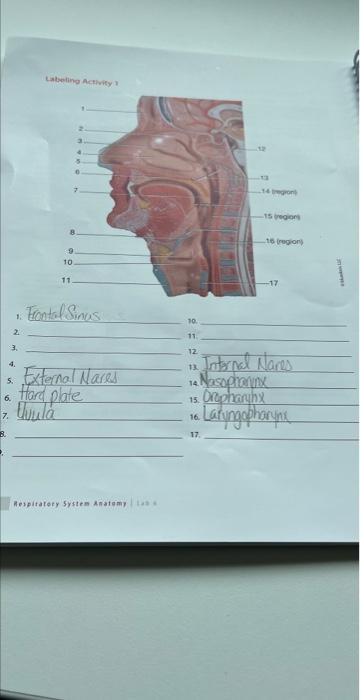 Labeling Activity 1
1
2
3
4
5
6
7
8
9
10
11
12
13
14 (region)
15 (region)
16 (region)
17
1. Frontal Sinus
2.
3.
4.
5. External Nares
6. Hard plate
7. Uvula
8.
10.
11.
12.
13. Internal Nares
14. Nasopharynx
15. Oropharynx
16. Laryngopharynx
17.
Respiratory System Anatomy | Lab 6